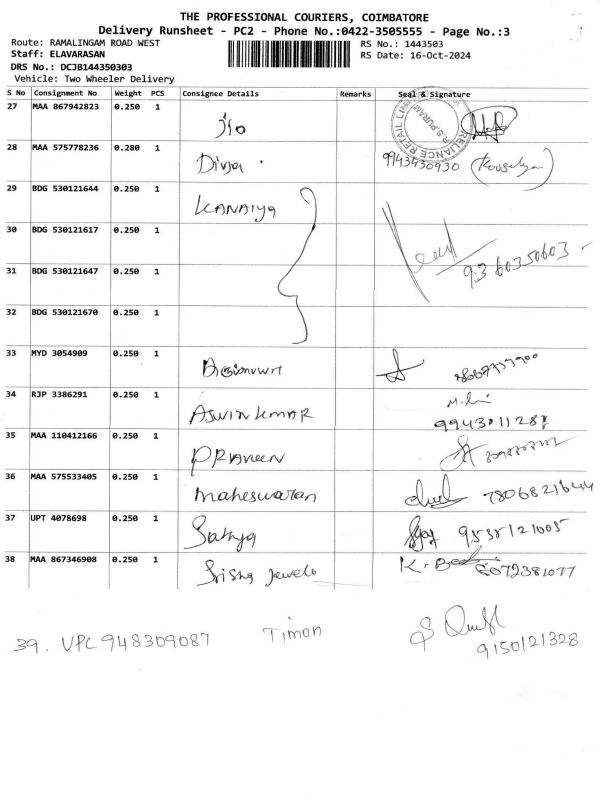 THE PROFESSIONAL COURIERS, COIMBATORE
Delivery Runsheet - PC2 - Phone No.:0422-3505555 - Page No.:3
Route: RAMALINGAM ROAD WEST RS No.: 1443503
Staff: ELAVARASAN RS Date: 16-Oct-2024
DRS No.: DCJB144350303
Vehicle: Two Wheeler Delivery
S No Consignment No Weight PCS Consignee Details Remarks Seal & Signature
27 MAA 867942823 0.250 1 Jio RELIANCE RETAIL R.S.PURAM
28 MAA 575778236 0.280 1 Divya 9943430930
29 BDG 530121644 0.250 1 KANAIYA
30 BDG 530121617 0.250 1 9360350603
31 BDG 530121647 0.250 1
32 BDG 530121670 0.250 1
33 MYD 3054909 0.250 1
34 RJP 3386291 0.250 1 ASWIN KUMAR 9943011287
35 MAA 110412166 0.250 1 PRAVEEN
36 MAA 575533405 0.250 1 Maheswaran 7806821644
37 UPT 4078698 0.250 1 Sathya 9538121005
38 MAA 867346908 0.250 1 Jewels
39. UPC 948309087 Timon 9150121328